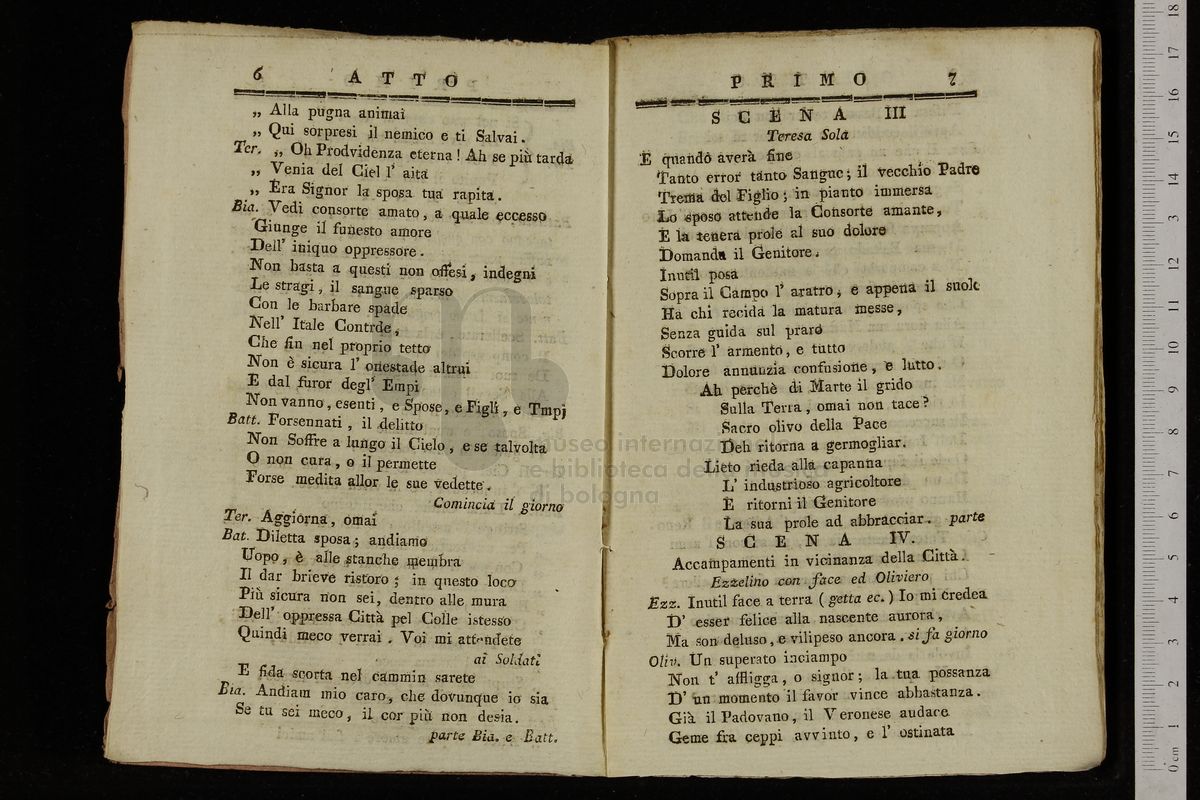 6 ATTO
„ Alla pugna animai
„ Qui sorpresi il nemico e ti Salvai.
Ter. „ Oh Prodvidenza eterna! Ah se più tarda
„ Venia del Ciel l' aita
„ Era Signor la sposa tua rapita.
Bia. Vedi consorte amato, a quale eccesso
Giunge il funesto amore
Dell' iniquo oppressore.
Non basta a questi non offesi, indegni
Le stragi, il sangue sparso
Con le barbare spade
Nell' Itale Contrde,
Che fin nel proprio tetto
Non è sicura l' onestade altrui
E dal furor degl' Empi
Non vanno, esenti, e Spose, e Figli, e Tmpj
Batt. Forsennati, il delitto
Non Soffre a lungo il Cielo, e se talvolta
O non cura, o il permette
Forse medita allor le sue vedette.
Comincia il giorno
Ter. Aggiorna, omai
Bat. Diletta sposa; andiamo
Uopo, è alle stanche membra
Il dar brieve ristoro; in questo loco
Più sicura non sei, dentro alle mura
Dell' oppressa Città pel Colle istesso
Quindi meco verrai. Voi mi attendete
ai Soldati
E fida scorta nel cammin sarete
Bia. Andiam mio caro, che dovunque io sia
Se tu sei meco, il cor più non desia.
parte Bia. e Batt.
PRIMO 7
SCENA III
Teresa Sola
E quando averà fine
Tanto error tanto Sangue; il vecchio Padre
Trema del Figlio; in pianto immersa
Lo sposo attende la Consorte amante,
E la tenera prole al suo dolore
Domanda il Genitore.
Inutil posa
Sopra il Campo l' aratro, e appena il suole
Ha chi recida la matura messe,
Senza guida sul praro
Scorre l' armento, e tutto
Dolore annunzia confusione, e lutto.
Ah perchè di Marte il grido
Sulla Terra, omai non tace?
Sacro olivo della Pace
Deh ritorna a germogliar.
Lieto rieda alla capanna
L' industrioso agricoltore
E ritorni il Genitore
La sua prole ad abbracciar. parte
SCENA IV.
Accampamenti in vicinanza della Città.
Ezzelino con face ed Oliviero
Ezz. Inutil face a terra (getta ec.) Io mi credea
D' esser felice alla nascente aurora,
Ma son deluso, e vilipeso ancora. si fa giorno
Oliv. Un superato inciampo
Non t' affligga, o signor; la tua possanza
D' un momento il favor vince abbastanza.
Già il Padovano, il Veronese audace
Geme fra ceppi avvinto, e l' ostinata
museo internazionale
e biblioteca della musica
di bologna
0 cm 1 2 3 4 5 6 7 8 9 10 11 12 13 14 15 16 17 18